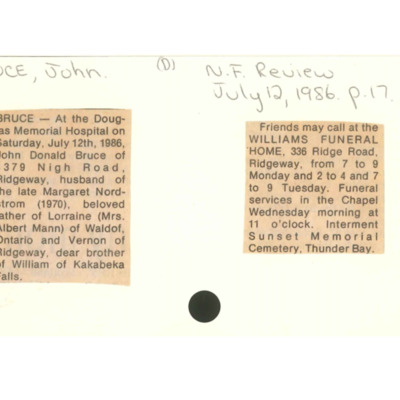 UCE, John.
(D)
N.F. Review
July 12, 1986. p.17.
BRUCE — At the Doug-
as Memorial Hospital on
Saturday, July 12th, 1986,
John Donald Bruce of
379 Nigh Road,
Ridgeway, husband of
he late Margaret Nord-
strom (1970), beloved
ather of Lorraine (Mrs.
Albert Mann) of Waldof,
Ontario and Vernon of
Ridgeway, dear brother
of William of Kakabeka
Falls.
Friends may call at the
WILLIAMS FUNERAL
HOME, 336 Ridge Road,
Ridgeway, from 7 to 9
Monday and 2 to 4 and 7
to 9 Tuesday. Funeral
services in the Chapel
Wednesday morning at
11 o'clock. Interment
Sunset Memorial
Cemetery, Thunder Bay.